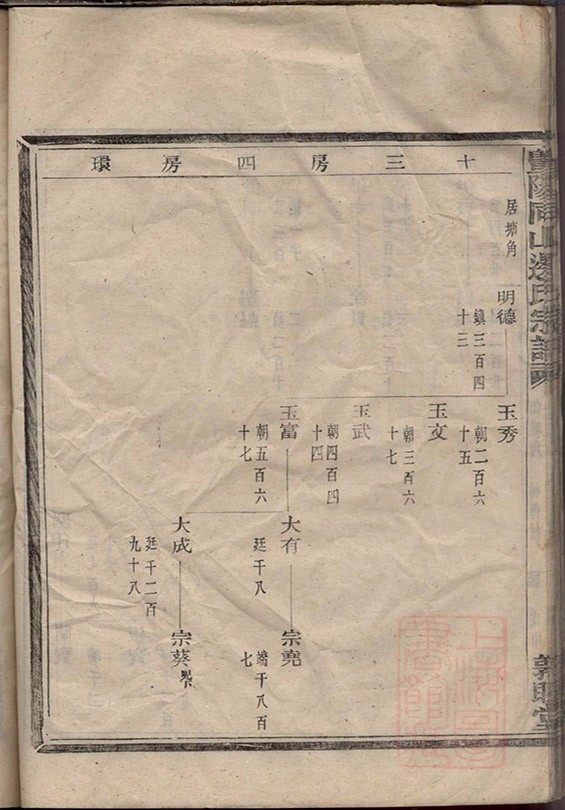 暨陽同山邊氏宗譜
十三房四房環
居塘角
明德
鎮三百四
十三
玉秀
朝二百六
十五
玉文
朝三百六
十七
玉武
朝四百四
十四
玉富
朝五百六
十七
大有
廷千八
宗堯
端千八百
七
大成
廷千二百
九十八
宗葵
敦睦堂
上海圖書館藏